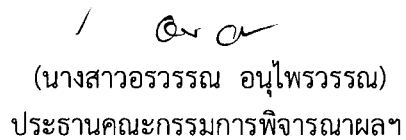 (นางสาวอรวรรณ อนุไพรวรรณ)
ประธานคณะกรรมการพิจารณาผลฯ